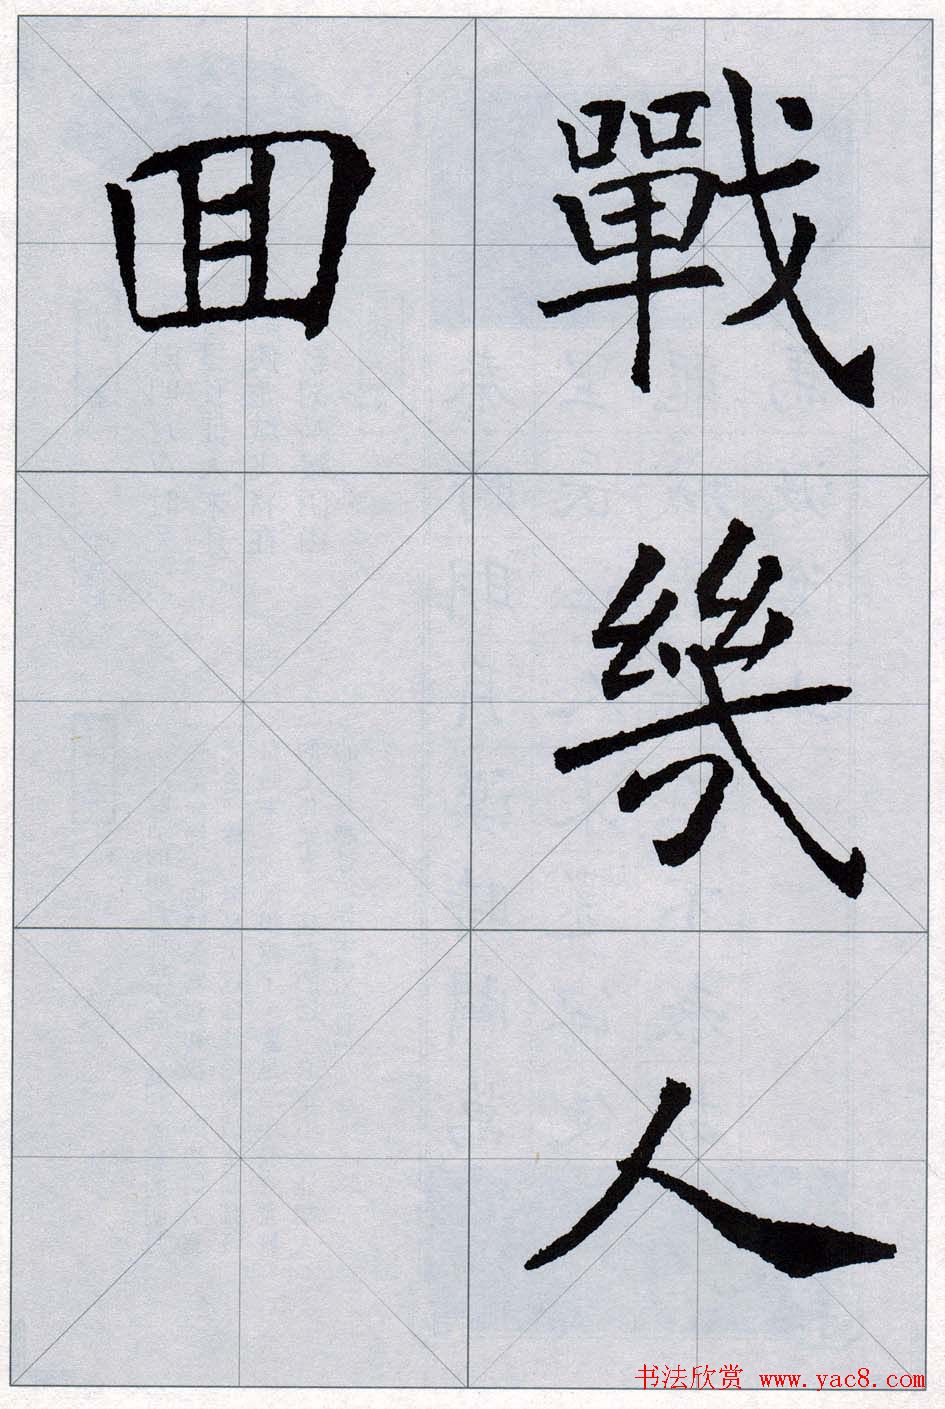 戰幾人
囬
书法欣赏 www.yac8.com